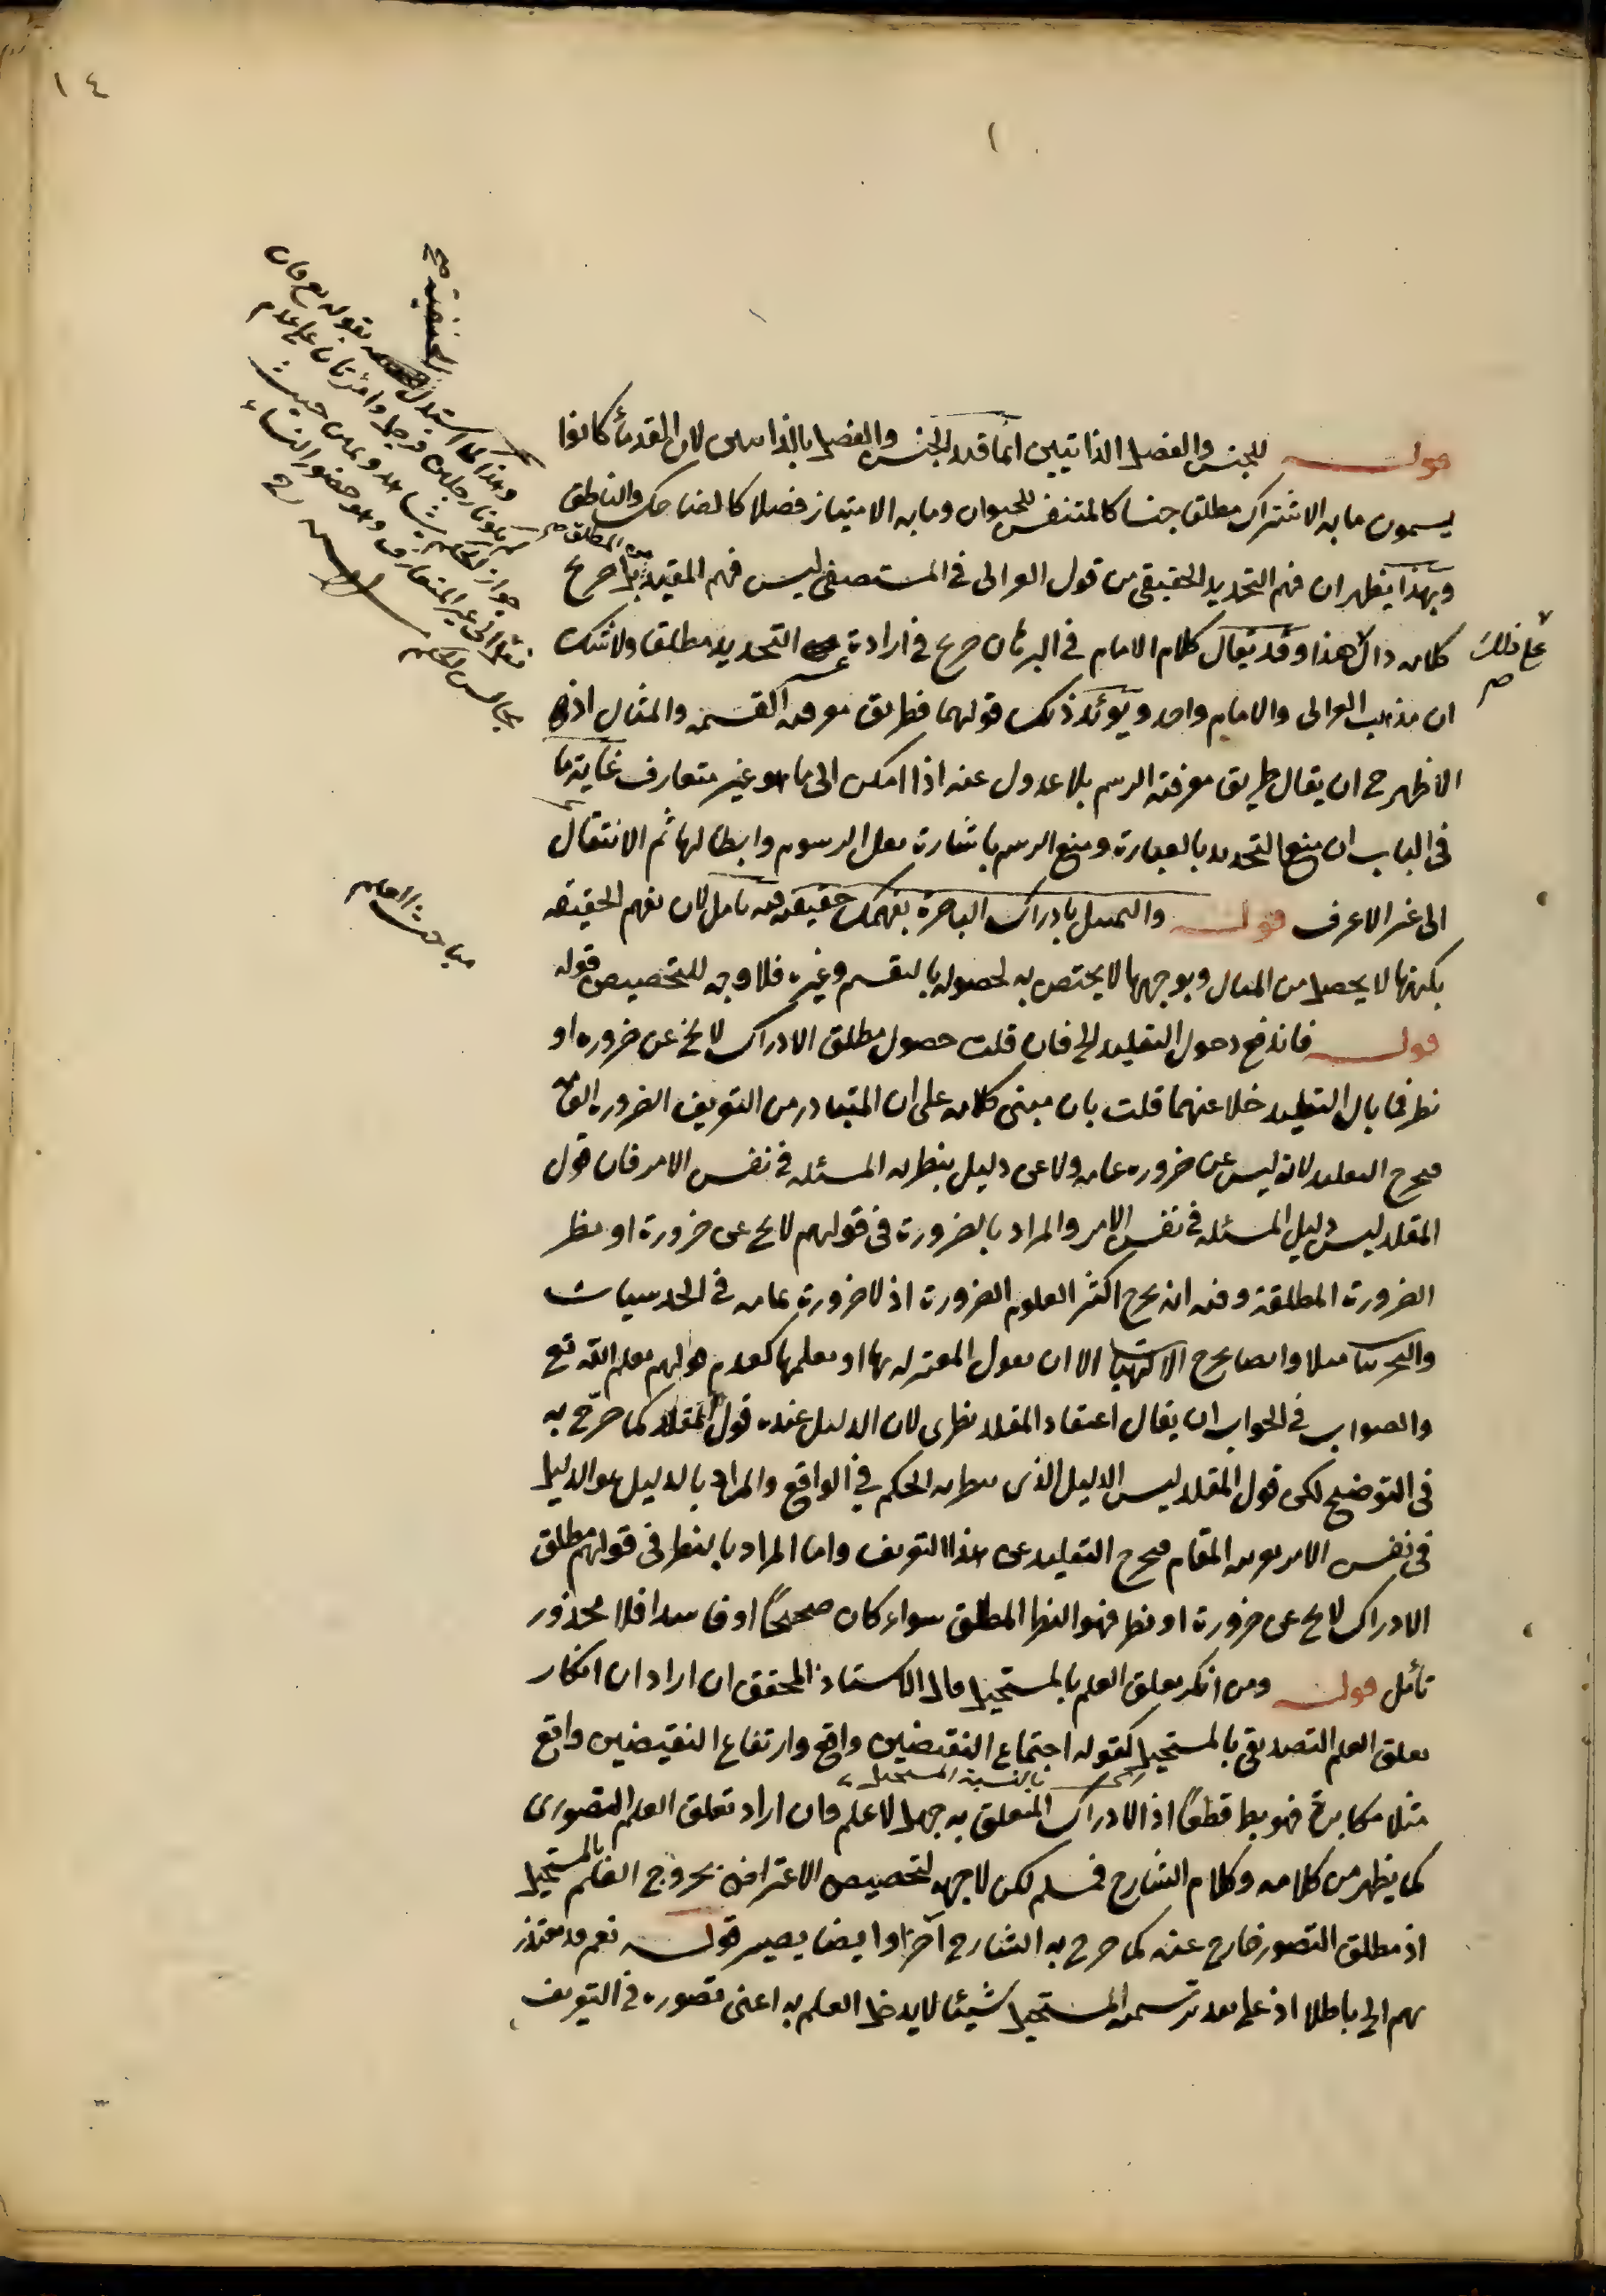 ١٤
١
قوله للجنس والفصل الذاتيين انما قيد الجنس والفصل بالذاتيين لان القدماء كانوا
يسمون ما به الاشتراك مطلقا جنسا كالمتنفس للحيوان وما به الامتياز فصلا كالضاحك والناطق
وبهذا يظهر ان فهم التحديد الحقيقي من قول الغزالى فى المستصفى ليس فهم المقيد من المطلق بلا صريح
كلامه دال على ذلك هذا وقد يقال كلام الامام فى البرهان صريح فى ارادة التحديد مطلقا ولا شك
ان مذهب الغزالى والامام واحد ويؤيد ذلك قولهما فطريق معرفته القسمة والمثال اذ
الاظهر ح ان يقال طريق معرفته الرسم بلا عدول عنه اذا امكن الى ما هو غير متعارف غاية ما
فى الباب ان منع التحديد بالعبارة ومنع الرسم باشارة نقل الرسوم وابطالها ثم الانتقال
الى غير الاعرف قوله والتمثيل بادراك الباصرة يفهمك حقيقته فيه تامل لان تفهم الحقيقة
بكنهها لا يحصل من المثال وبوجهها لا يختص به لحصوله بالتقسيم وغيره فلا وجه للتخصيص قوله
قوله فاندفع دخول التقليد الخ فان قلت حصول مطلق الادراك لا يخ عن ضرورة او
نظر فما بال التقليد خلا عنهما قلت بان مبنى كلامه على ان المتبادر من التعريف الضرورة العامة
فيخرج التقليد لانه ليس عن ضرورة عامة ولا عن دليل ينظر به المسئلة فى نفس الامر فان قول
المقلد ليس دليل المسئلة فى نفس الامر والمراد بالضرورة فى قولهم لا يخ عن ضرورة او نظر
الضرورة المطلقة وفيه انه يخرج اكثر العلوم الضرورة اذ لا ضرورة عامة فى الحدسيات
والتجربيات مثلا وايضا يخرج الالهيات الا ان يقول المعتزلة بها او بعلمها كعدم قولهم بعلم الله تع
والصواب فى الجواب ان يقال اعتقاد المقلد نظرى لان الدليل عنده قول المقلد كما صرح به
فى التوضيح لكن قول المقلد ليس الدليل الذى ينظر به الحكم فى الواقع والمراد بالدليل هو الدليل
فى نفس الامر بقرينة المقام فيخرج التقليد عن هذا التعريف واما المراد بالنظر فى قولهم مطلق
الادراك لا يخ عن ضرورة او نظر فهو النظر المطلق سواء كان صحيحا او فاسدا فلا محذور
تأمل قوله ومن انكر تعلق العلم بالمستحيل قال الاستاذ المحقق ان اراد ان انكار
تعلق العلم التصديقى بالمستحيل كقوله اجتماع النقيضين واقع وارتفاع النقيضين واقع
مثلا مكابرة فهو بط قطعا اذ الادراك المتعلق به بالنسبة المستحيلة جهل لا علم وان اراد تعلق العلم التصورى
كما يظهر من كلامه وكلام الشارح فمسلم لكن لا جهة لتخصيص الاعتراض بخروج العلم بالمستحيل
اذ مطلق التصور خارج عنه كما صرح به الشارح آخرا وايضا يصير قوله نعم قد يعتذر
لهم الى باطلا اذ على تقدير تسمية المستحيل شيئا لا يدخل العلم به اعنى تصوره فى التعريف
على ذلك
صح
الحنفية صح
وهذا كما استدل بقوله تع فان
لم يكونا رجلين فرجل وامرأتان على عدم
جواز الحكم بشاهد ويمين حيث
نقل الى غير المتعارف وهو حضور النساء
مجالس الحكم
مباحث العلم